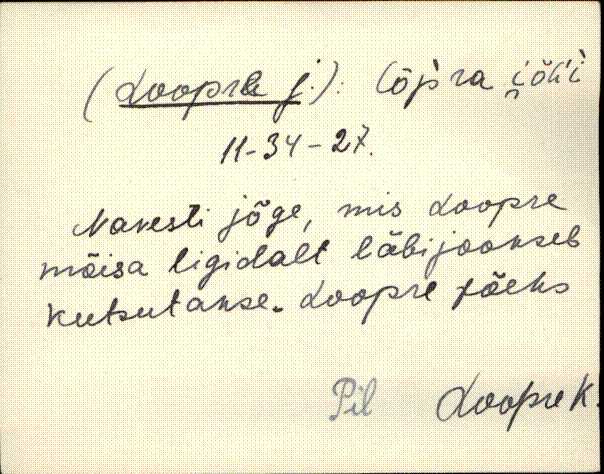 (Loopre j.): lo̬p̀ra i̯õk̀i
11-34-27.
Navesti jõge, mis Loopre
mõisa ligidalt läbijookseb
kutsutakse. Loopre jõeks
Pil Loopre k.